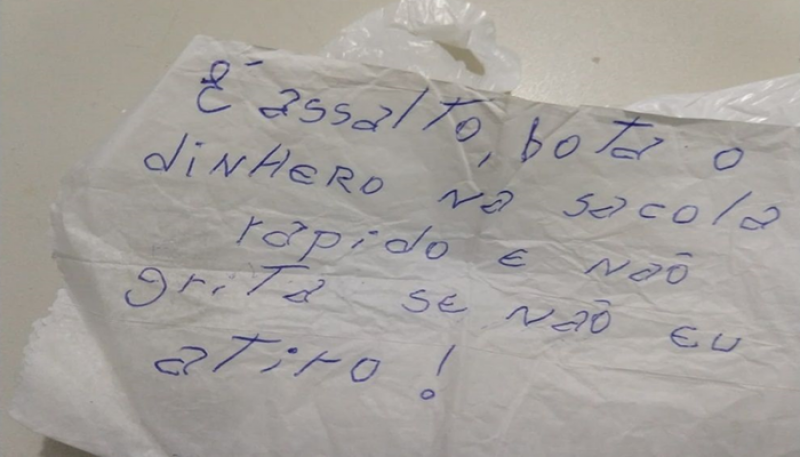 É assalto, bota o
dinHERO na sacola
rapido e não
grita se não eu
atiro!